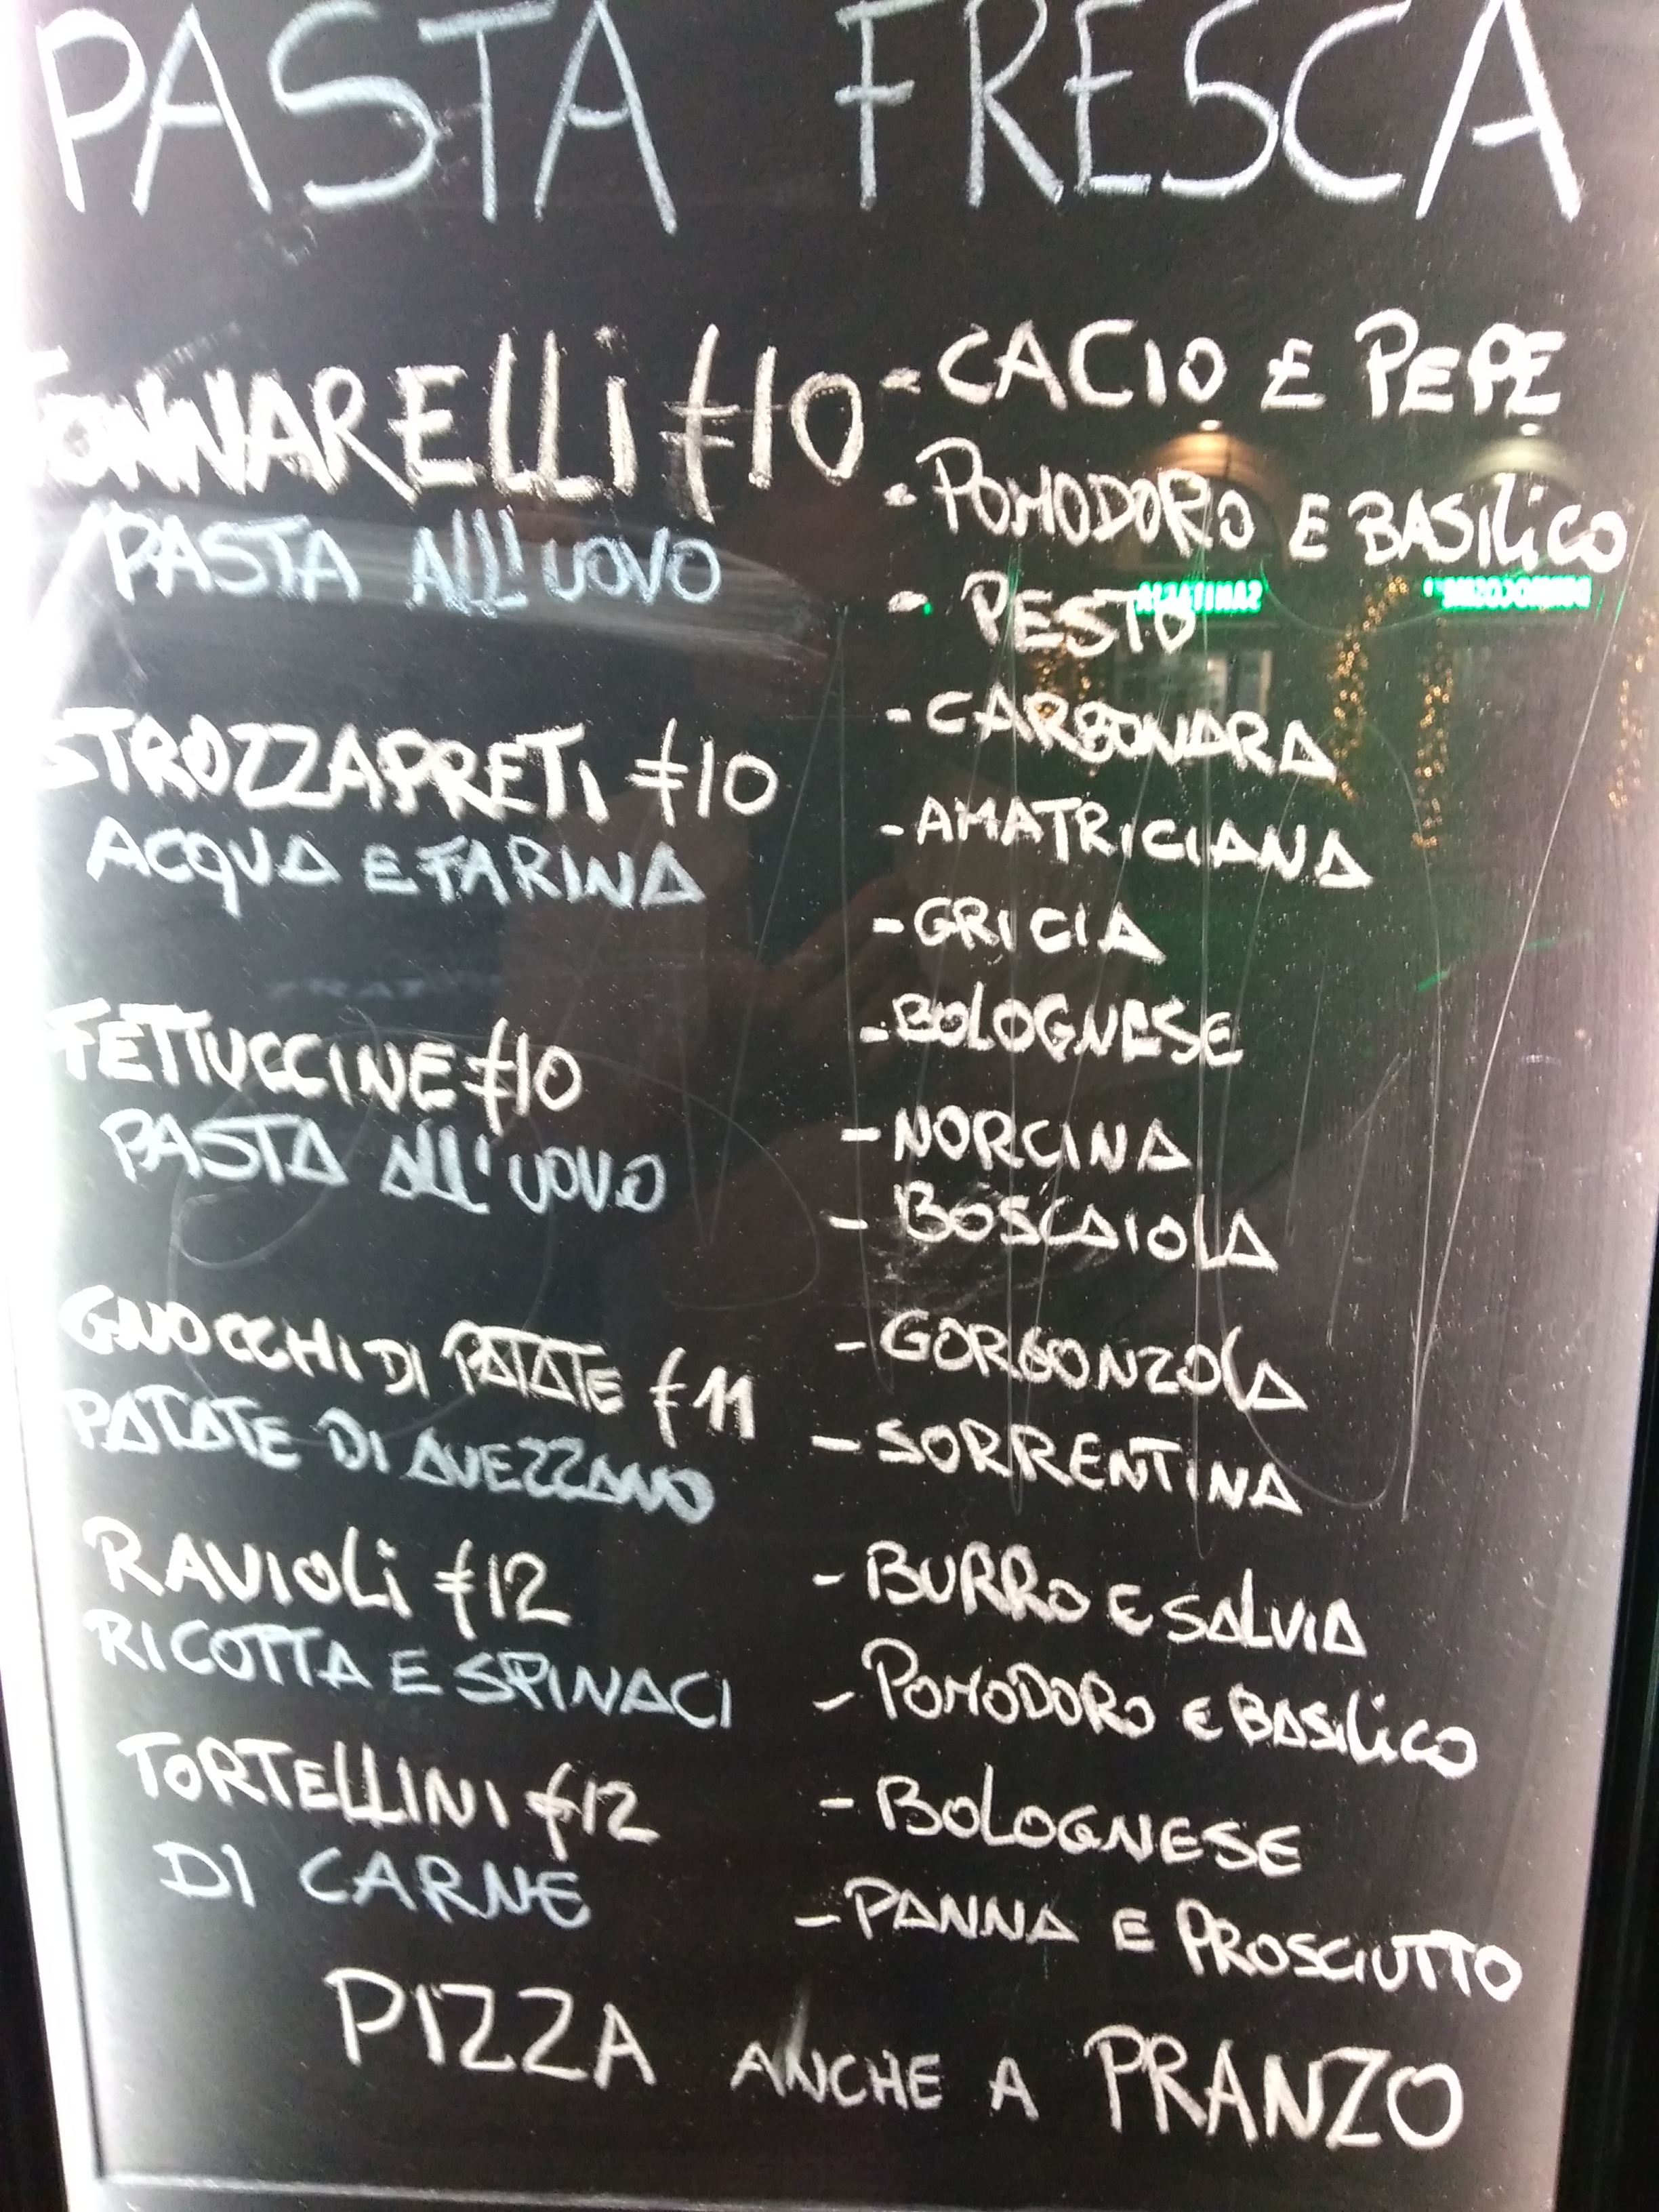 PASTA FRESCA
TONNARELLI €10
PASTA ALL'UOVO
STROZZAPRETI €10
ACQUA E FARINA
FETTUCCINE €10
PASTA ALL'UOVO
GNOCCHI DI PATATE €11
PATATE DI AVEZZANO
RAVIOLI €12
RICOTTA E SPINACI
TORTELLINI €12
DI CARNE
- CACIO E PEPE
- POMODORO E BASILICO
- PESTO
- CARBONARA
- AMATRICIANA
- GRICIA
- BOLOGNESE
- NORCINA
- BOSCAIOLA
- GORGONZOLA
- SORRENTINA
- BURRO E SALVIA
- POMODORO E BASILICO
- BOLOGNESE
- PANNA E PROSCIUTTO
PIZZA ANCHE A PRANZO